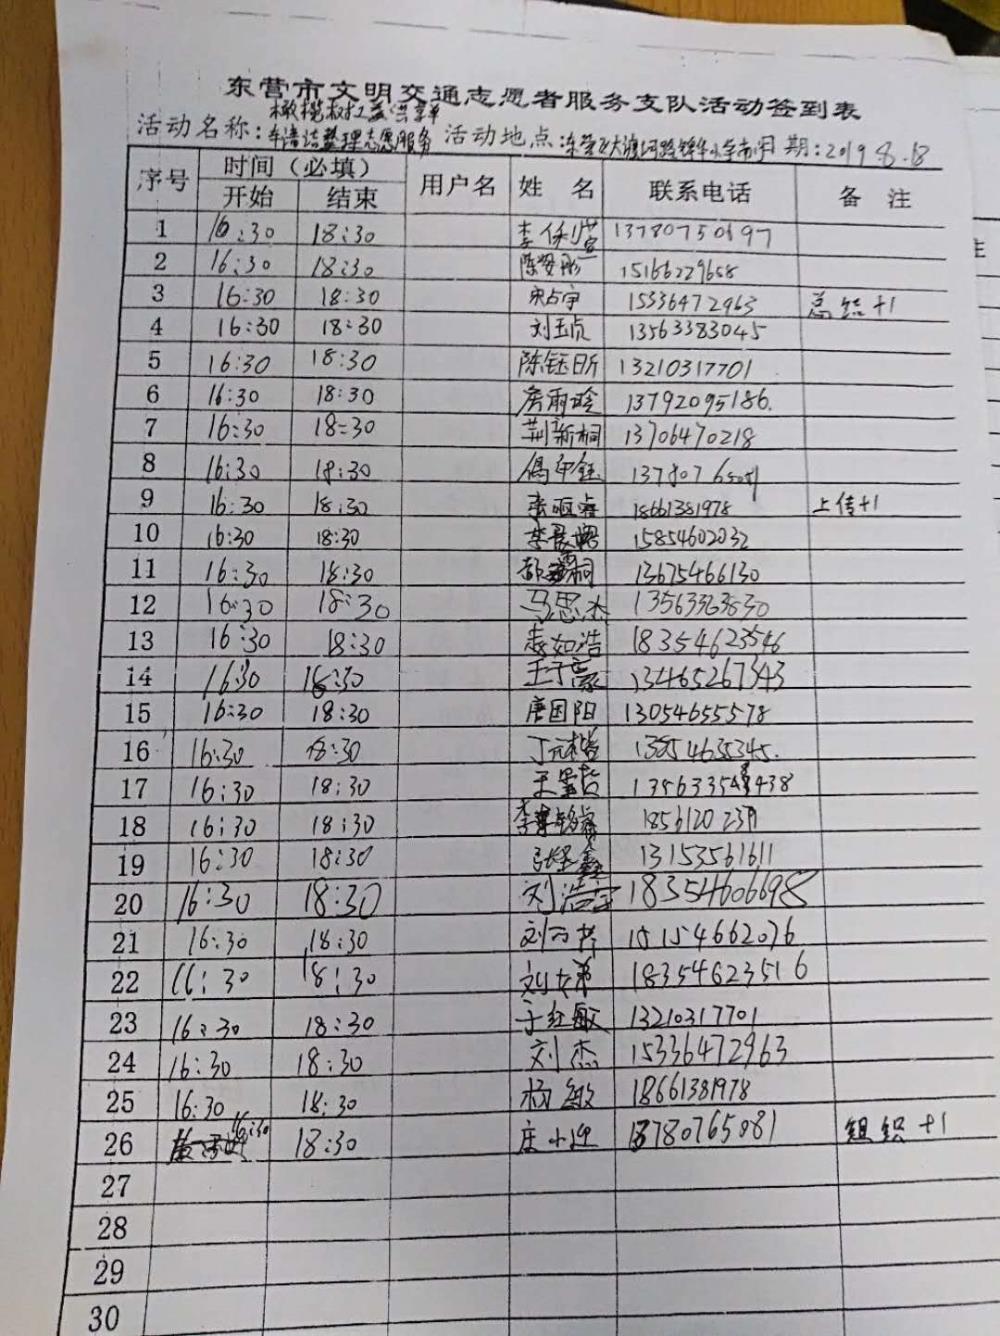 东营市文明交通志愿者服务支队活动签到表
橄榄树公益共享单
活动名称:车清洁整理志愿服务 活动地点:东营区大渡河路 日期:2019.8.18
序号 时间（必填） 用户名 姓 名 联系电话 备 注
开始 结束
1 16:30 18:30 李 13780750697
2 16:30 18:30 陈 15166229658
3 16:30 18:30 宋占宇 15336472963 总结+1
4 16:30 18:30 刘玉贞 13563383045
5 16:30 18:30 陈钰昕 13210317701
6 16:30 18:30 房雨晗 13792095186.
7 16:30 18:30 荆新桐 13706470218
8 16:30 18:30
9 16:30 18:30 18661381978 上传+1
10 16:30 18:30 李 15854602032
11 16:30 18:30 13675466130
12 16:30 18:30 马思杰 13563363830
13 16:30 18:30 袁如浩 18354623546
14 16:30 18:30 王子豪 13465267343
15 16:30 18:30 唐国阳 13054655578
16 16:30 18:30 丁元楷
17 16:30 18:30 王
18 16:30 18:30 李
19 16:30 18:30 张 13153561611
20 16:30 18:30 刘浩宇 18354606698
21 16:30 18:30 刘 15154662076
22 16:30 18:30 刘 18354623516
23 16:30 18:30 于红敏 13210317701
24 16:30 18:30 刘杰 15336472963
25 16:30 18:30 杨敏 18661381978
26 16:30 18:30 庄小 13780765081 组织+1
27
28
29
30